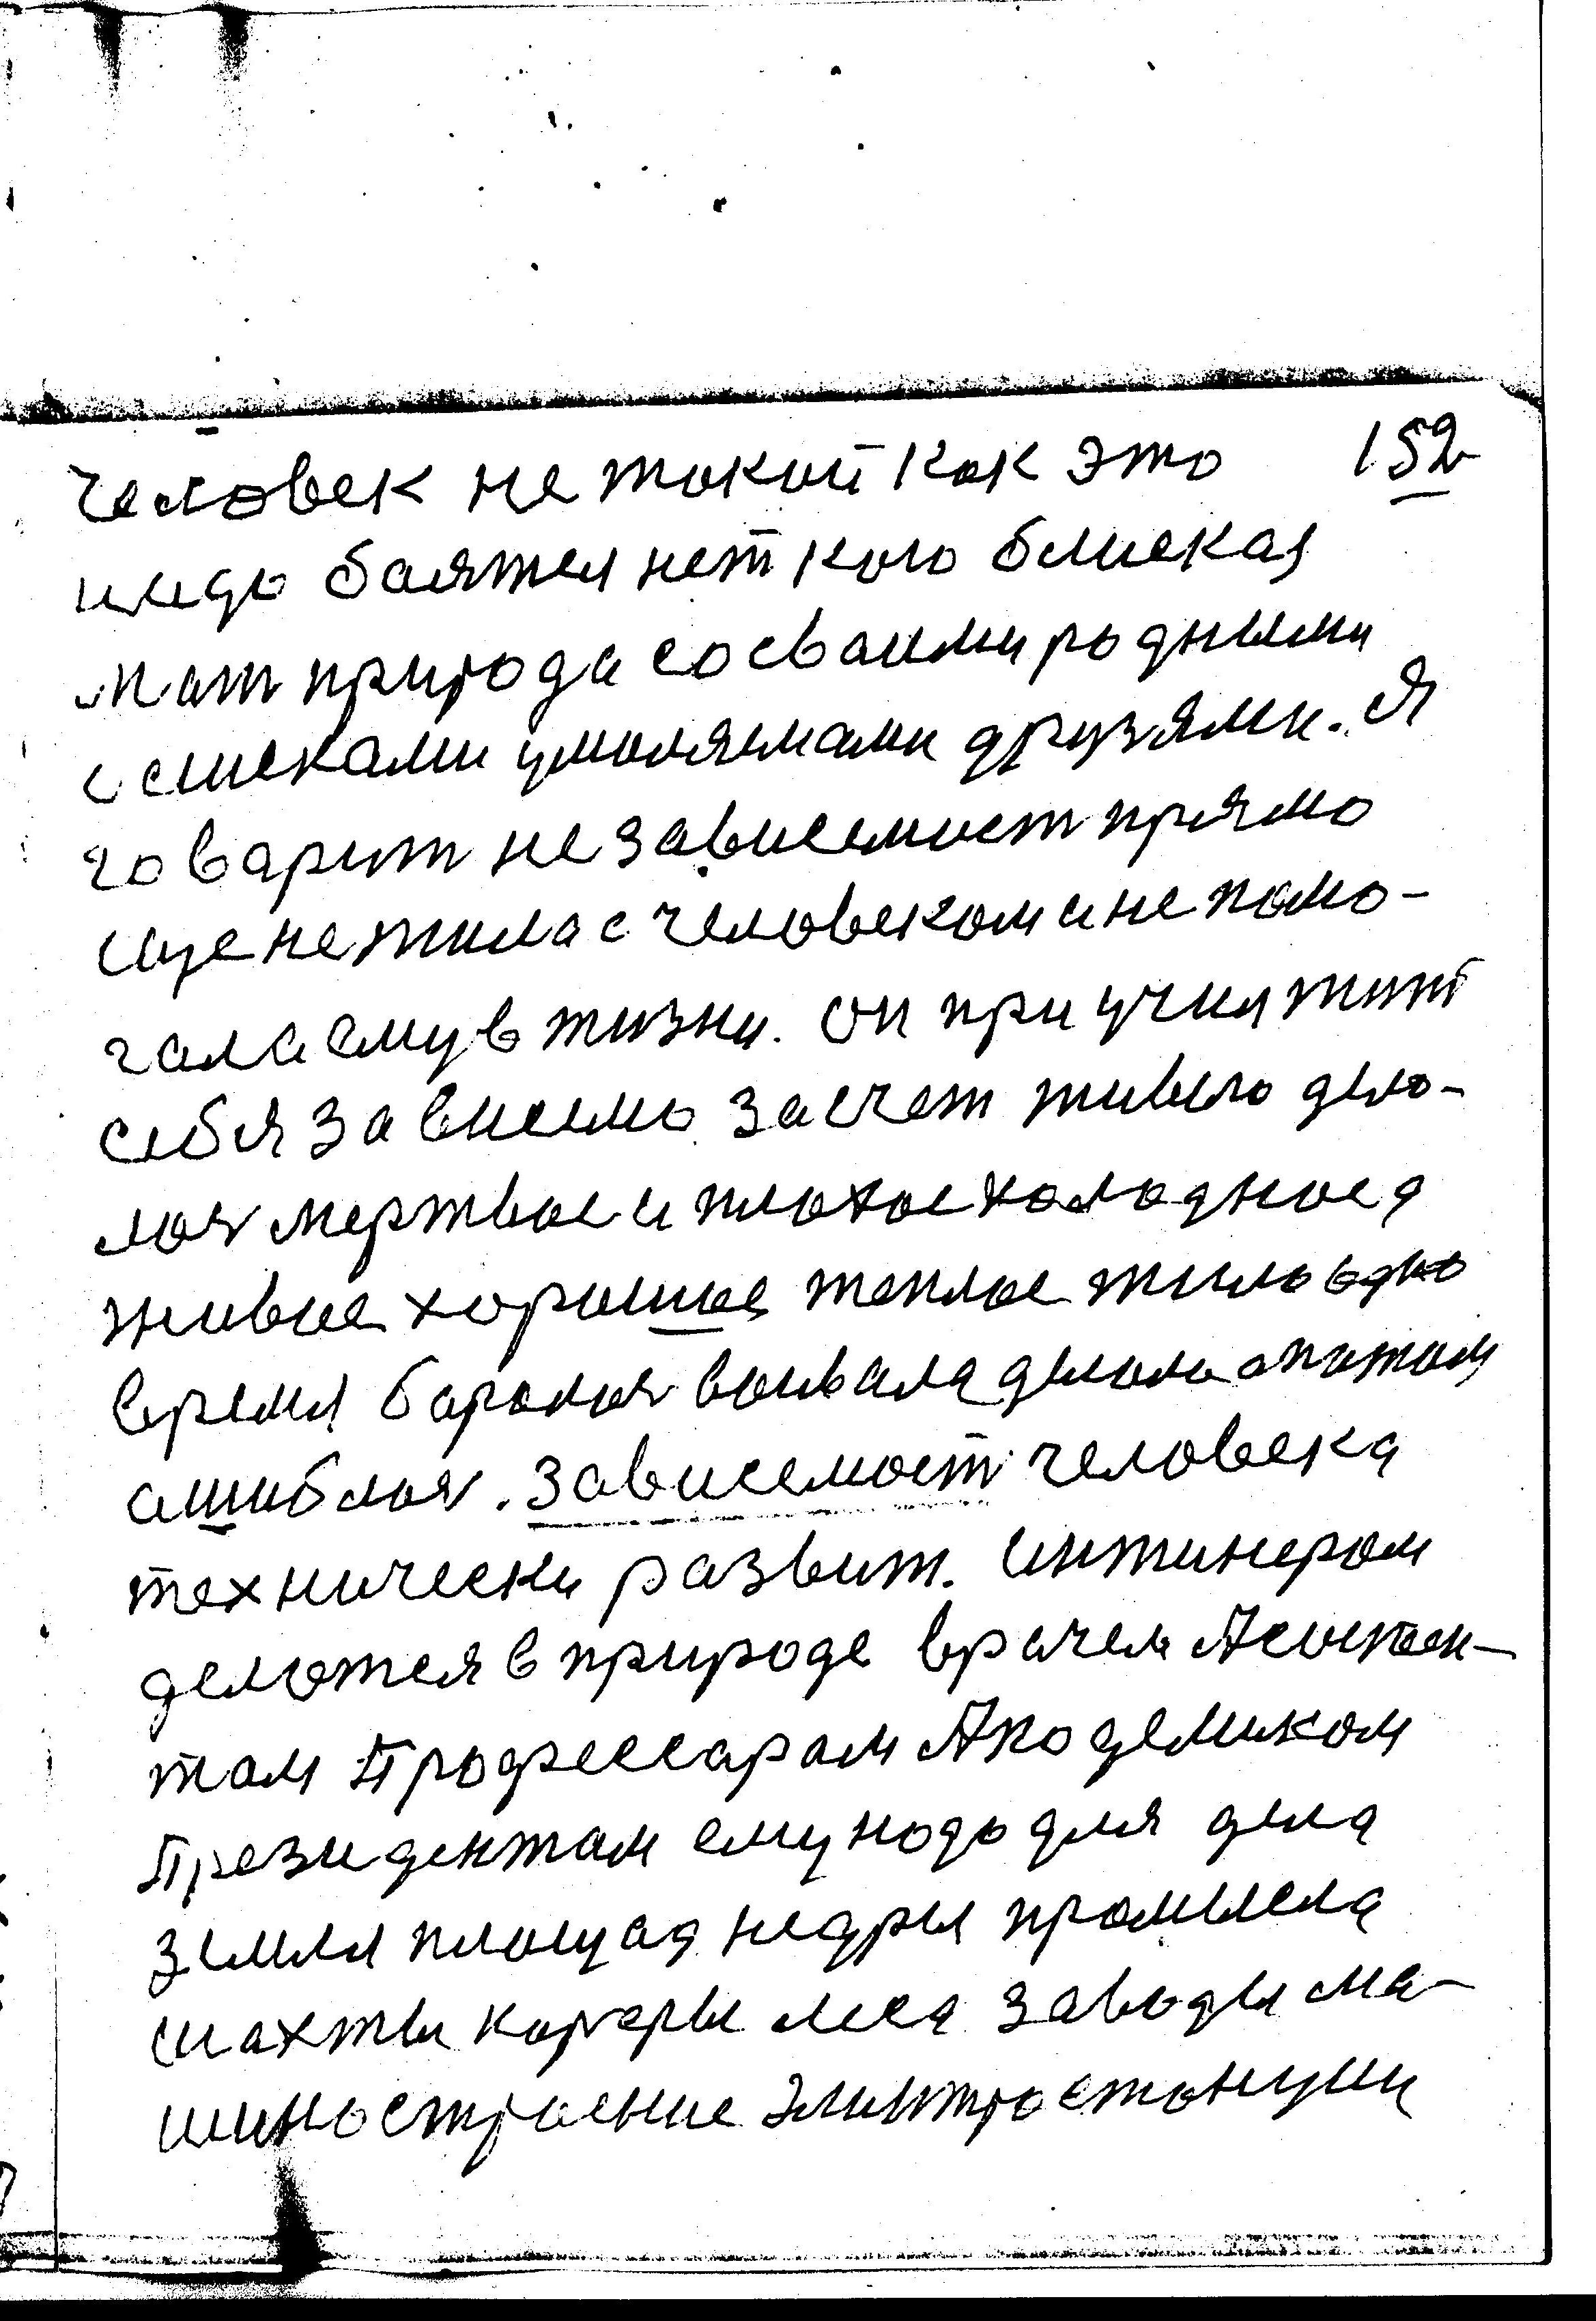 152
человек не такой как это
надо баятся нет кого блиская
мат природа со сваими родными
и с исками умоляемами друзями. Я
говарит не зависемост прямо
още не жила с человеком и не помо-
гала ему в жизни. Он приучил жит
себя зависемо за счет живого дело-
лоя мертвое и плохое холодное а
живое хорошые теплое жило одно
время баролоя воивала делоло а потом
ашиблоя. Зависемост человека
технически развит. Инжинером
делатся в природе врачем Асистен-
том Профессаром Академиком
Президентам ему нада для дела
земля площад недры промысла
шахты кареры леса заводы ма-
шиностроение электростанции